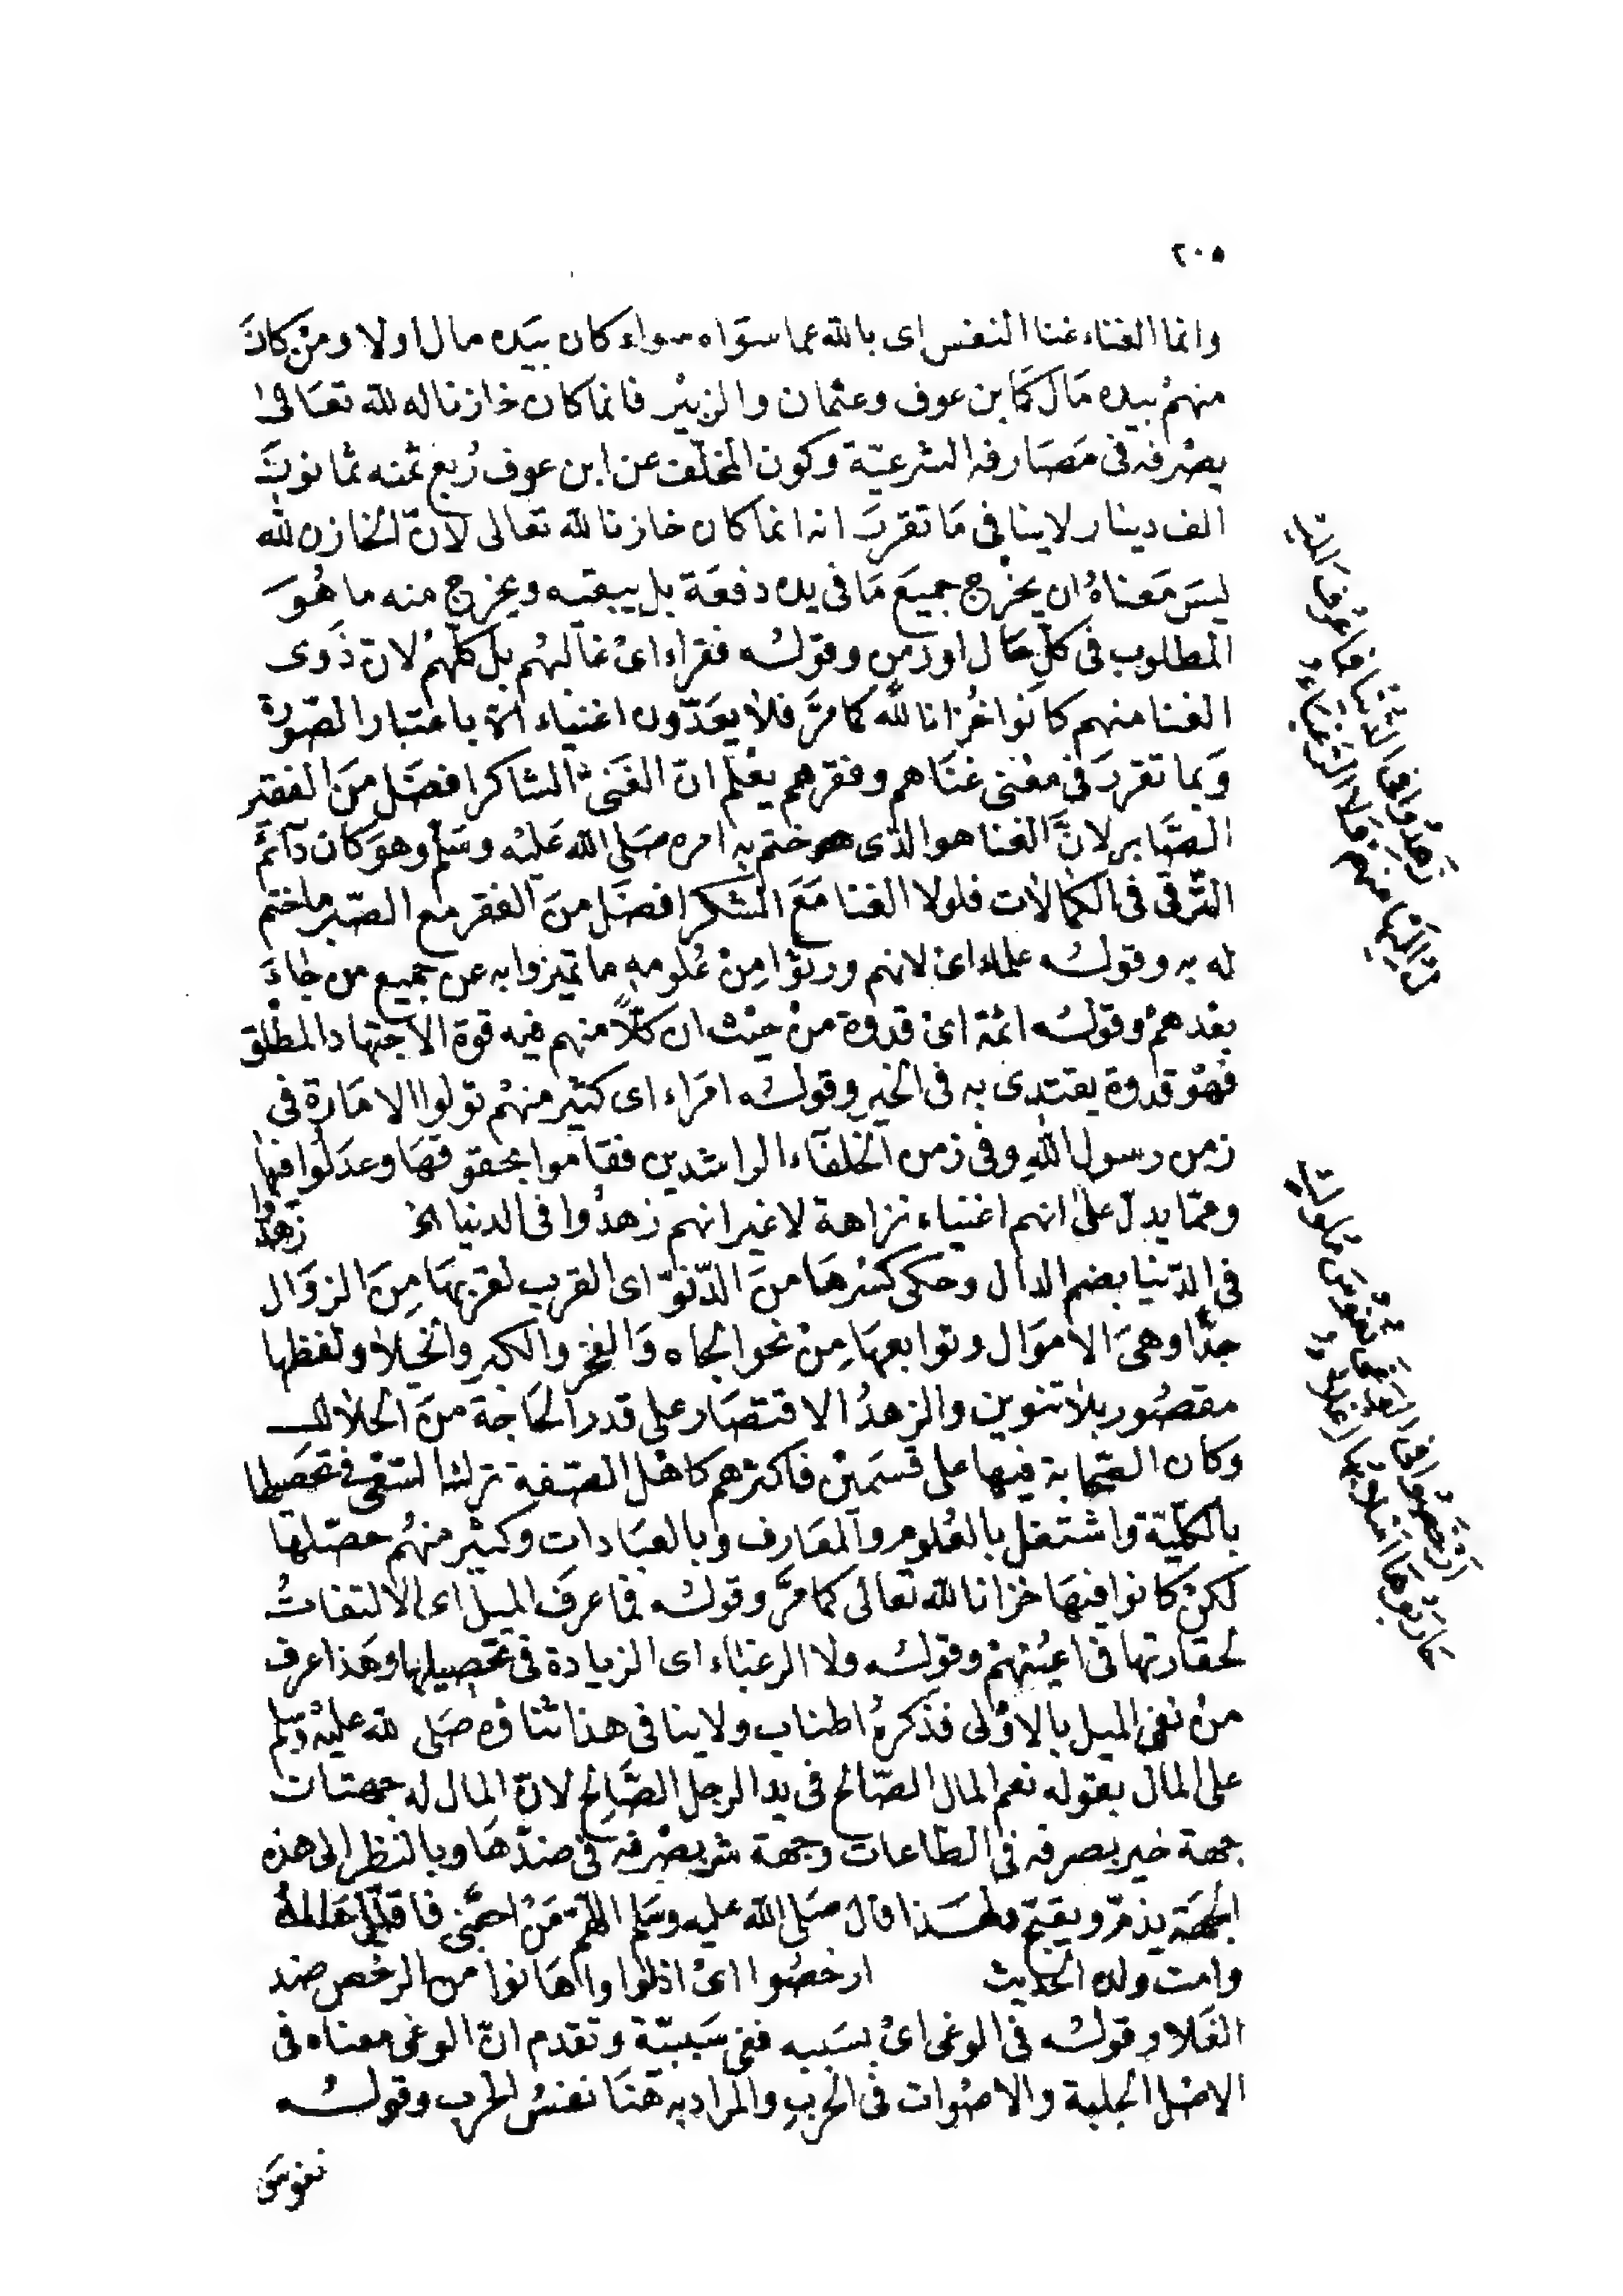 ٢٠٥
وانما الغناء غنا النفس اى بالله عما سواه سواء كان بيده مال اولا ومن كان
منهم بيده مال كابن عوف وعثمان والزبير فانما كان خازنا له لله تعالى
يصرفه فى مصارفه الشرعية وكون المخلف عن ابن عوف ربع ثمنه ثمانون
الف دينار لا ينافى ما تقرر انه انما كان خازنا لله تعالى لان الخازن لله
ليس معناه ان يخرج جميع ما فى يده دفعة بل يبقيه ويخرج منه ما هو
المطلوب فى كل حال او زمن وقوله فقراء اى غالبهم بل كلهم لان ذوى
الغنا منهم كانوا خزانا لله كما مر فلا يعدون اغنياء الا باعتبار الصورة
وبما تقرر فى معنى غناهم وفقرهم يعلم ان الغنى الشاكر افضل من الفقير
الصابر لان الغنا هو الذى ختم به امره صلى الله عليه وسلم وهو كان دآئم
الترقى فى الكمالات فلولا الغنا مع الشكر افضل من الفقر مع الصبر ما ختم
له به وقوله علماء اى لانهم ورثوا من علومه ما تميزوا به عن جميع من جاء
بعدهم وقوله ائمة اى قدوة من حيث ان كلاً منهم فيه قوة الاجتهاد المطلق
فهو قدوة يقتدى به فى الخير وقوله امراء اى كثير منهم تولوا الامارة فى
زمن رسول الله وفى زمن الخلفاء الراشدين فقاموا بحقوقها وعدلوا فيها
ومما يدل على انهم اغنياء نزاهة لا غير انهم زهدوا فى الدنيا الخ زهدوا
فى الدنيا بضم الدال وحكى كسرها من الدنو اى القرب لقربها من الزوال
جدًا وهى الاموال وتوابعها من نحو الجاه والفخر والكبر والخيلا ولفظها
مقصور بلا تنوين والزهد الاقتصار على قدر الحاجة من الحلال
وكان الصحابة فيها على قسمين فاكثرهم كاهل الصفة ترك السعى فى تحصيلها
بالكلية واشتغل بالعلوم والمعارف وبالعبادات وكثير منهم حصلها
لكن كانوا فيها خزانا لله تعالى كما مر وقوله فما عرف الميل اى الالتفات
لحقارتها فى اعينهم وقوله ولا الرغباء اى الزيادة فى تحصيلها وهذا عرف
من نفى الميل بالاولى فذكره اطناب ولا ينافى هذا ثناؤه صلى لله عليه وسلم
على المال بقوله نعم المال الصالح فى يد الرجل الصالح لان المال له جهتان
جهة خير بصرفه فى الطاعات وجهة شر بصرفه فى ضدها وبالنظر الى هذه
الجهة يذم ويقبح ولهذا قال صلى الله عليه وسلم اللهم من احبنى فاقلل ماله
وامت ولده الحديث ارخصوا اى اذلوا واهانوا من الرخص ضد
الغلا وقوله فى الوغى اى بسببه ففى سببية وتقدم ان الوغى معناه فى
الاصل الجلبة والاصوات فى الحرب والمراد به هنا نفس الحرب وقوله
نفوس
زهدوا فى الدنيا فما عرف الميـ
ـل اليها منهم ولا الرغباء
ارخصوا فى الوغى نفوس ملوك
حاربوها اسلابها اغلاء